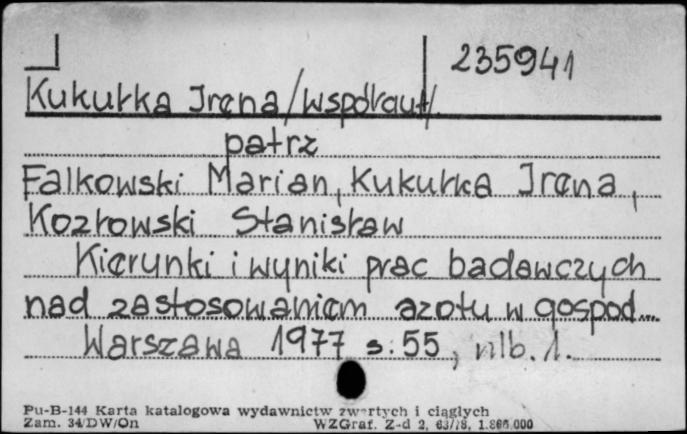 235941
Kukułka Irena /współaut/.
patrz
Falkowski Marian, Kukułka Irena,
Kozłowski Stanisław
Kierunki i wyniki prac badawczych
nad zastosowaniem azotu w gospod...
Warszawa 1977 s. 55, nlb. 1.
Pu-B-144 Karta katalogowa wydawnictw zwartych i ciągłych
Zam. 34/DW/On WZGraf. Z-d 2, 63/78, 1.866.000